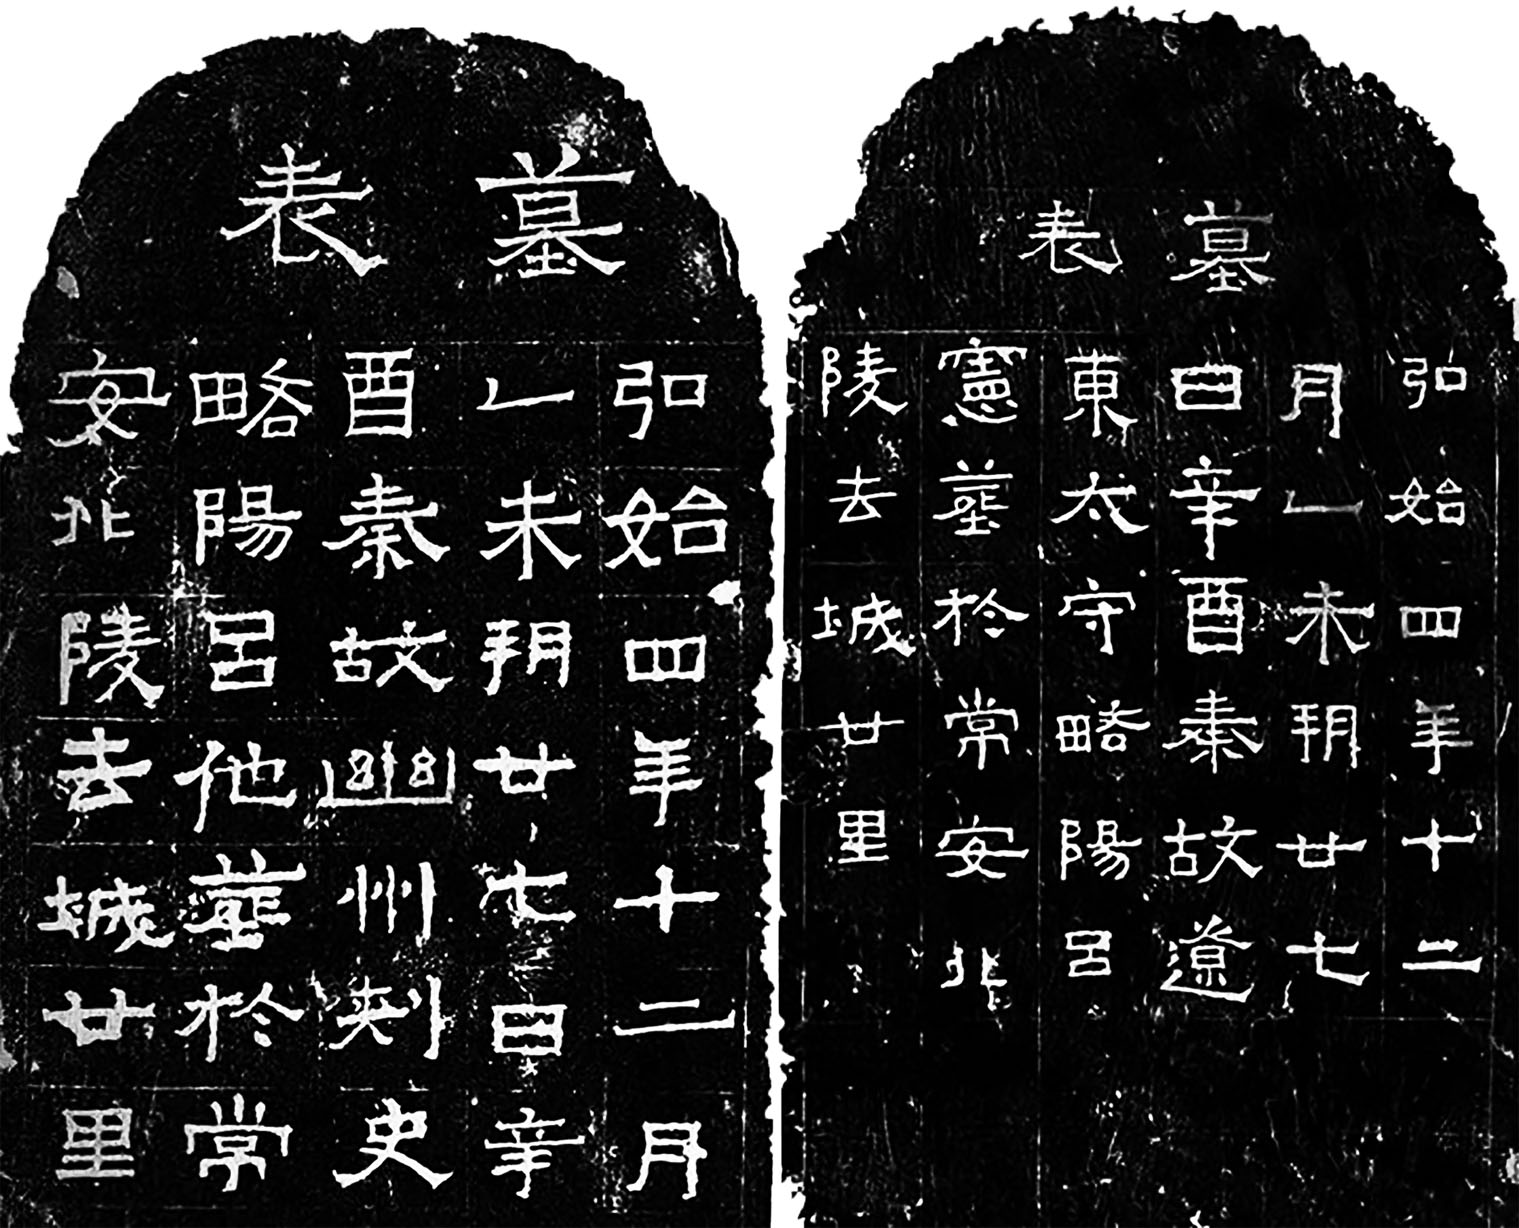 墓表
弘始四年十二
月乙未朔廿七
日辛酉秦故遼
東太守略陽呂
憲葬於常安北
陵去城廿里
墓表
弘始四年十二月
乙未朔廿七日辛
酉秦故幽州刺史
略陽呂他葬於常
安北陵去城廿里